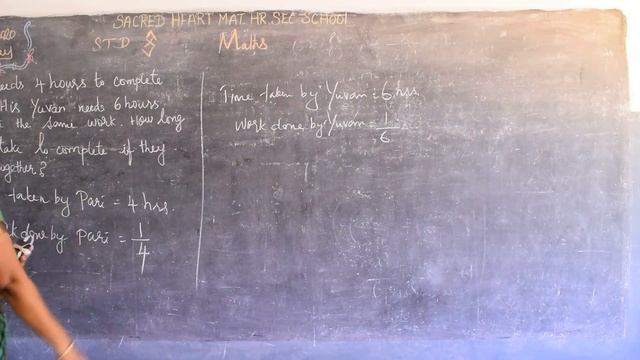 SACRED HEART MAT. HR. SEC SCHOOL
STD
Maths
eeds 4 hours to complete
His Yuvan needs 6 hours
the same work. How long
take to complete if they
ogether?
taken by Pari = 4 hrs.
k done by Pari = 1/4
Time taken by Yuvan : 6 hrs
Work done by Yuvan = 1/6